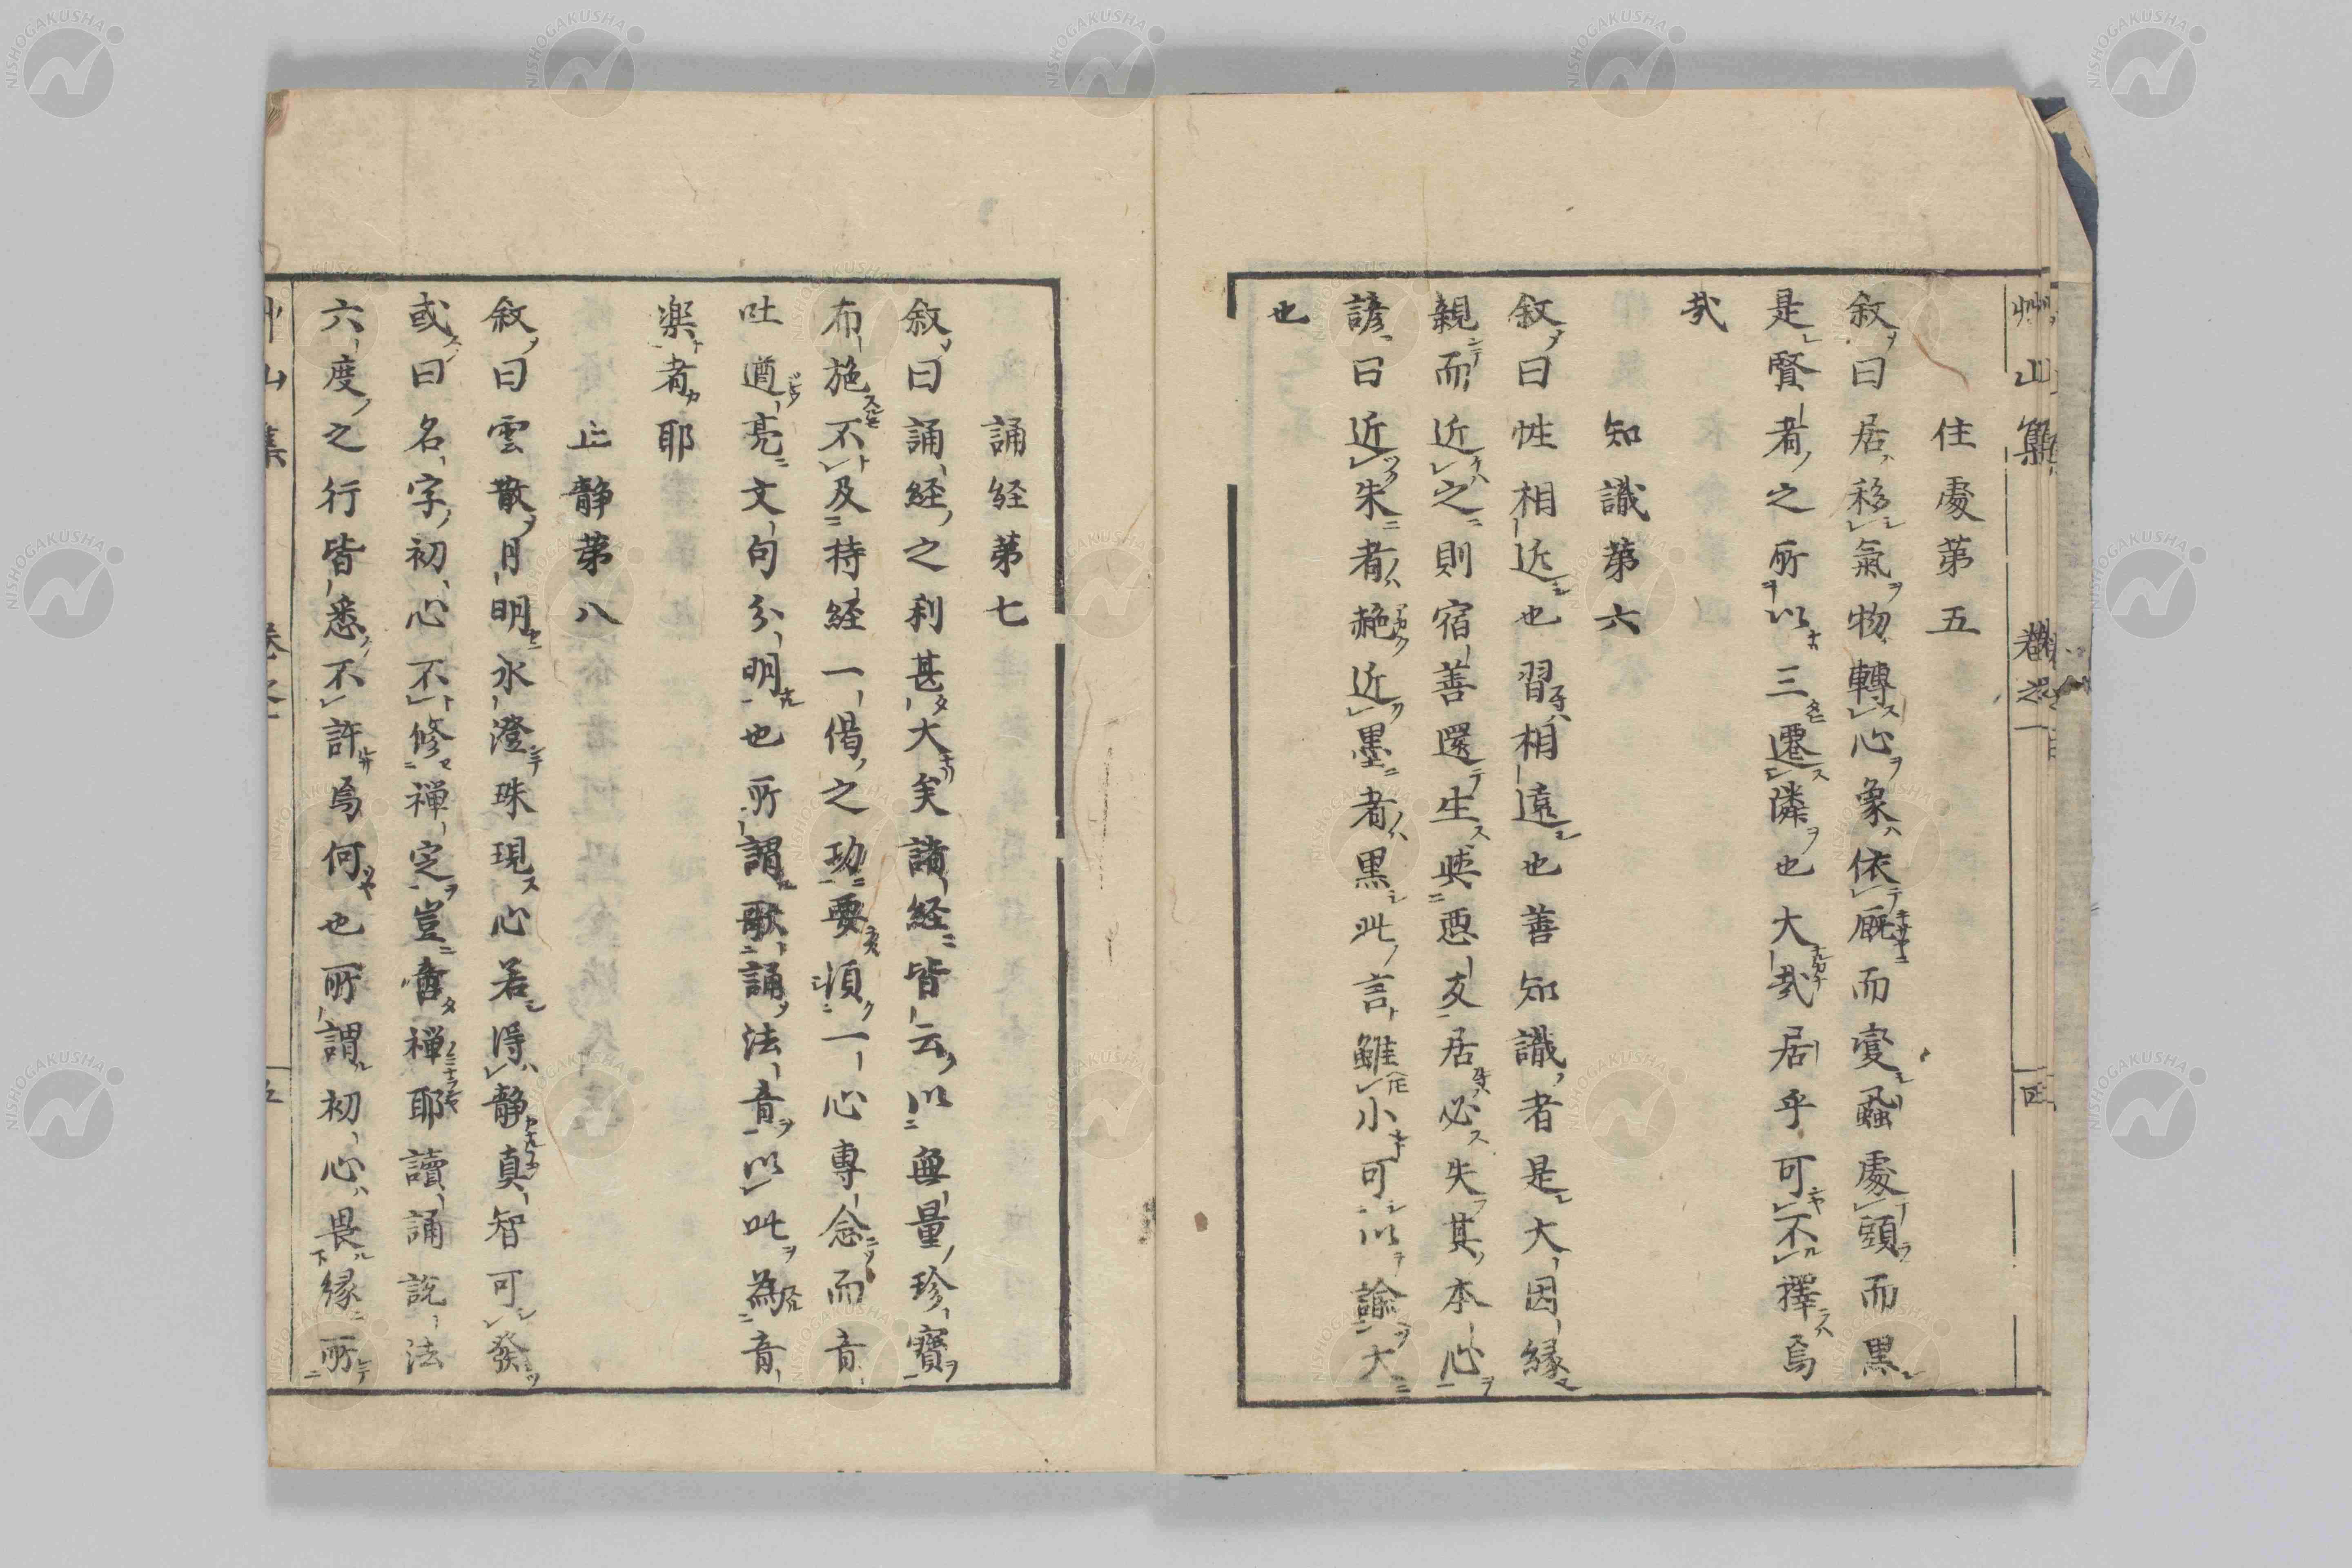 艸山集 卷之一 四
住處第五
敘曰居移氣物轉心象依厩而變蝨處頭而黒
是賢者之所以三遷隣也大哉居乎可不擇焉
哉
知識第六
敘曰性相近也習相遠也善知識者是大因縁
親而近之則宿善還生與惡友居必失其本心
諺曰近朱者赩近墨者黒此言雖小可以諭大
也
誦経第七
敘曰誦経之利甚大矣諸経皆云以無量珍寶
布施不及持経一偈之功要須一心專念而音
吐遒亮文句分明也所謂歌誦法音以此為音
楽者耶
止靜第八
敘曰雲散月明水澄珠現心若得静真智可發
或曰名字初心不修禅定豈啻禅耶讀誦說法
六度之行皆悉不許焉何也所謂初心畏縁所